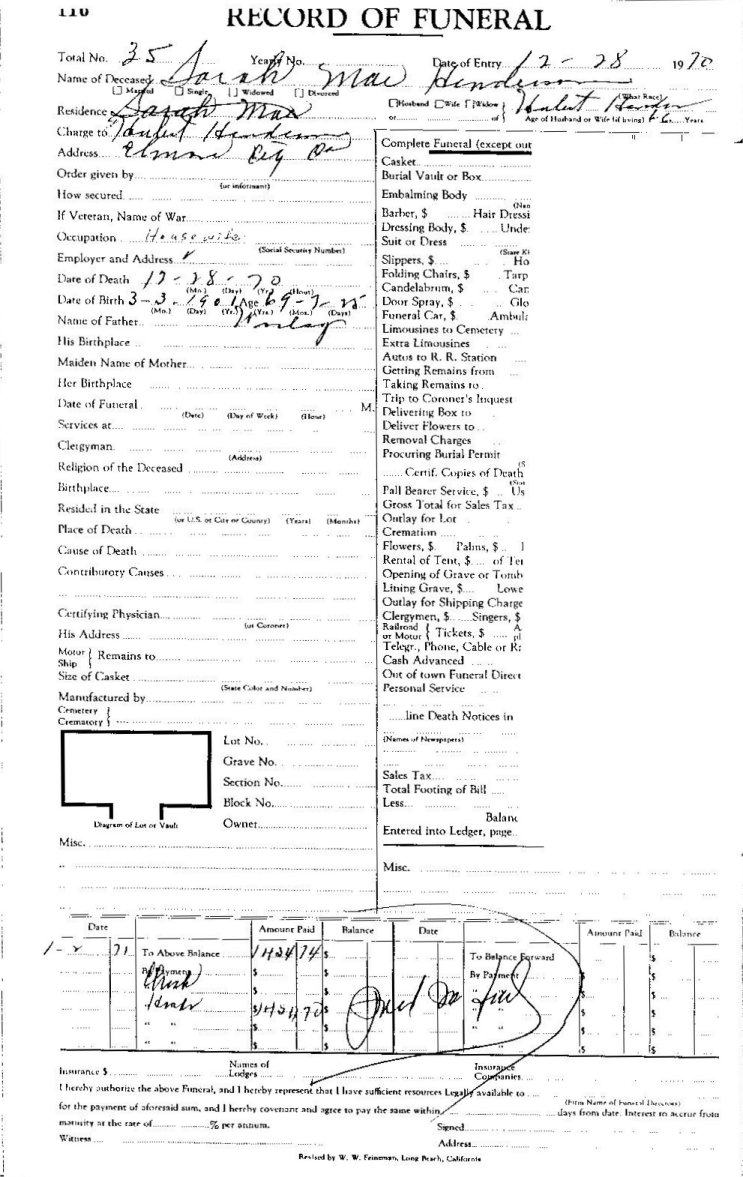 110
RECORD OF FUNERAL
Total No. 35 Yearly No. Date of Entry 12 - 28 1970
Name of Deceased Sarah Mae Henderson
[ ] Married [ ] Single [ ] Widowed [ ] Divorced (What Race)
Residence Sarah Mae [ ]Husband [ ]Wife [ ]Widow }
or of } Age of Husband or Wife (if living) Years
Charge to Henderson
Address Complete Funeral (except out
Order given by
(or informant)
How secured
If Veteran, Name of War
Occupation Housewife
(Social Security Number)
Employer and Address
Date of Death 12 - 28 - 70
(Mo.) (Day) (Yr.) (Hour)
Date of Birth 3 - 3 - 1901 Age 69 - 9 - 25
(Mo.) (Day) (Yr.) (Yrs.) (Mos.) (Days)
Name of Father
His Birthplace
Maiden Name of Mother
Her Birthplace
Date of Funeral M.
(Date) (Day of Week) (Hour)
Services at
Clergyman
(Address)
Religion of the Deceased
Birthplace
Resided in the State
(or U.S. or City or County) (Years) (Months)
Place of Death
Cause of Death
Contributory Causes
Certifying Physician
(or Coroner)
His Address
Motor } Remains to
Ship
Size of Casket
(State Color and Number)
Manufactured by
Cemetery }
Crematory }
Lot No.
Grave No.
Section No.
Block No.
Diagram of Lot or Vault Owner
Misc.
Casket
Burial Vault or Box
Embalming Body
Barber, $ Hair Dressi
Dressing Body, $ Unde
Suit or Dress
Slippers, $ Ho
Folding Chairs, $ Tarp
Candelabrum, $ Can
Door Spray, $ Glo
Funeral Car, $ Ambula
Limousines to Cemetery
Extra Limousines
Autos to R. R. Station
Getting Remains from
Taking Remains to
Trip to Coroner's Inquest
Delivering Box to
Deliver Flowers to
Removal Charges
Procuring Burial Permit
Certif. Copies of Death
Pall Bearer Service, $ Us
Gross Total for Sales Tax
Outlay for Lot
Cremation
Flowers, $ Palms, $
Rental of Tent, $ of Ter
Opening of Grave or Tomb
Lining Grave, $ Lowe
Outlay for Shipping Charge
Clergymen, $ Singers, $
Railroad
or Motor { Tickets, $
Telegr., Phone, Cable or Ra
Cash Advanced
Out of town Funeral Direct
Personal Service
line Death Notices in
(Names of Newspapers)
Sales Tax
Total Footing of Bill
Less
Balanc
Entered into Ledger, page
Misc.
Date Amount Paid Balance Date Amount Paid Balance
1-2 71 To Above Balance $ To Balance Forward $
By Payment $ By Payment $
" " $ " " $
" " $ " " $
" " $ " " $
Insurance $ Names of Lodges Insurance Companies
I hereby authorize the above Funeral, and I hereby represent that I have sufficient resources Legally available to
(Firm Name of Funeral Directors)
for the payment of aforesaid sum, and I hereby covenant and agree to pay the same within days from date. Interest to accrue from
maturity at the rate of % per annum. Signed
Witness Address
Revised by W. W. Feineman, Long Beach, California